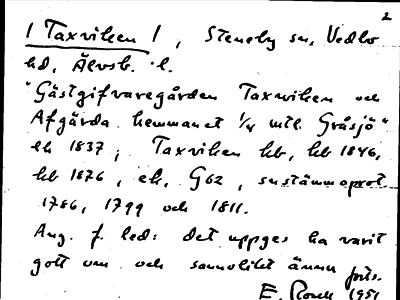 2
/ Taxviken / , Steneby sn, Vedbo
hd, Älvsb. l.
"Gästgifvaregården Taxwiken och
Afgärda hemmanet 1/4 mtl. Gråsjö"
eh 1837, Taxviken hb, hb 1846,
hb 1876, ek, G62, sustämmoprot
1786, 1799 och 1811.
Ang. f. led: det uppges ha varit
gott om och sannolikt ännu forts.
E. Rosell 1951